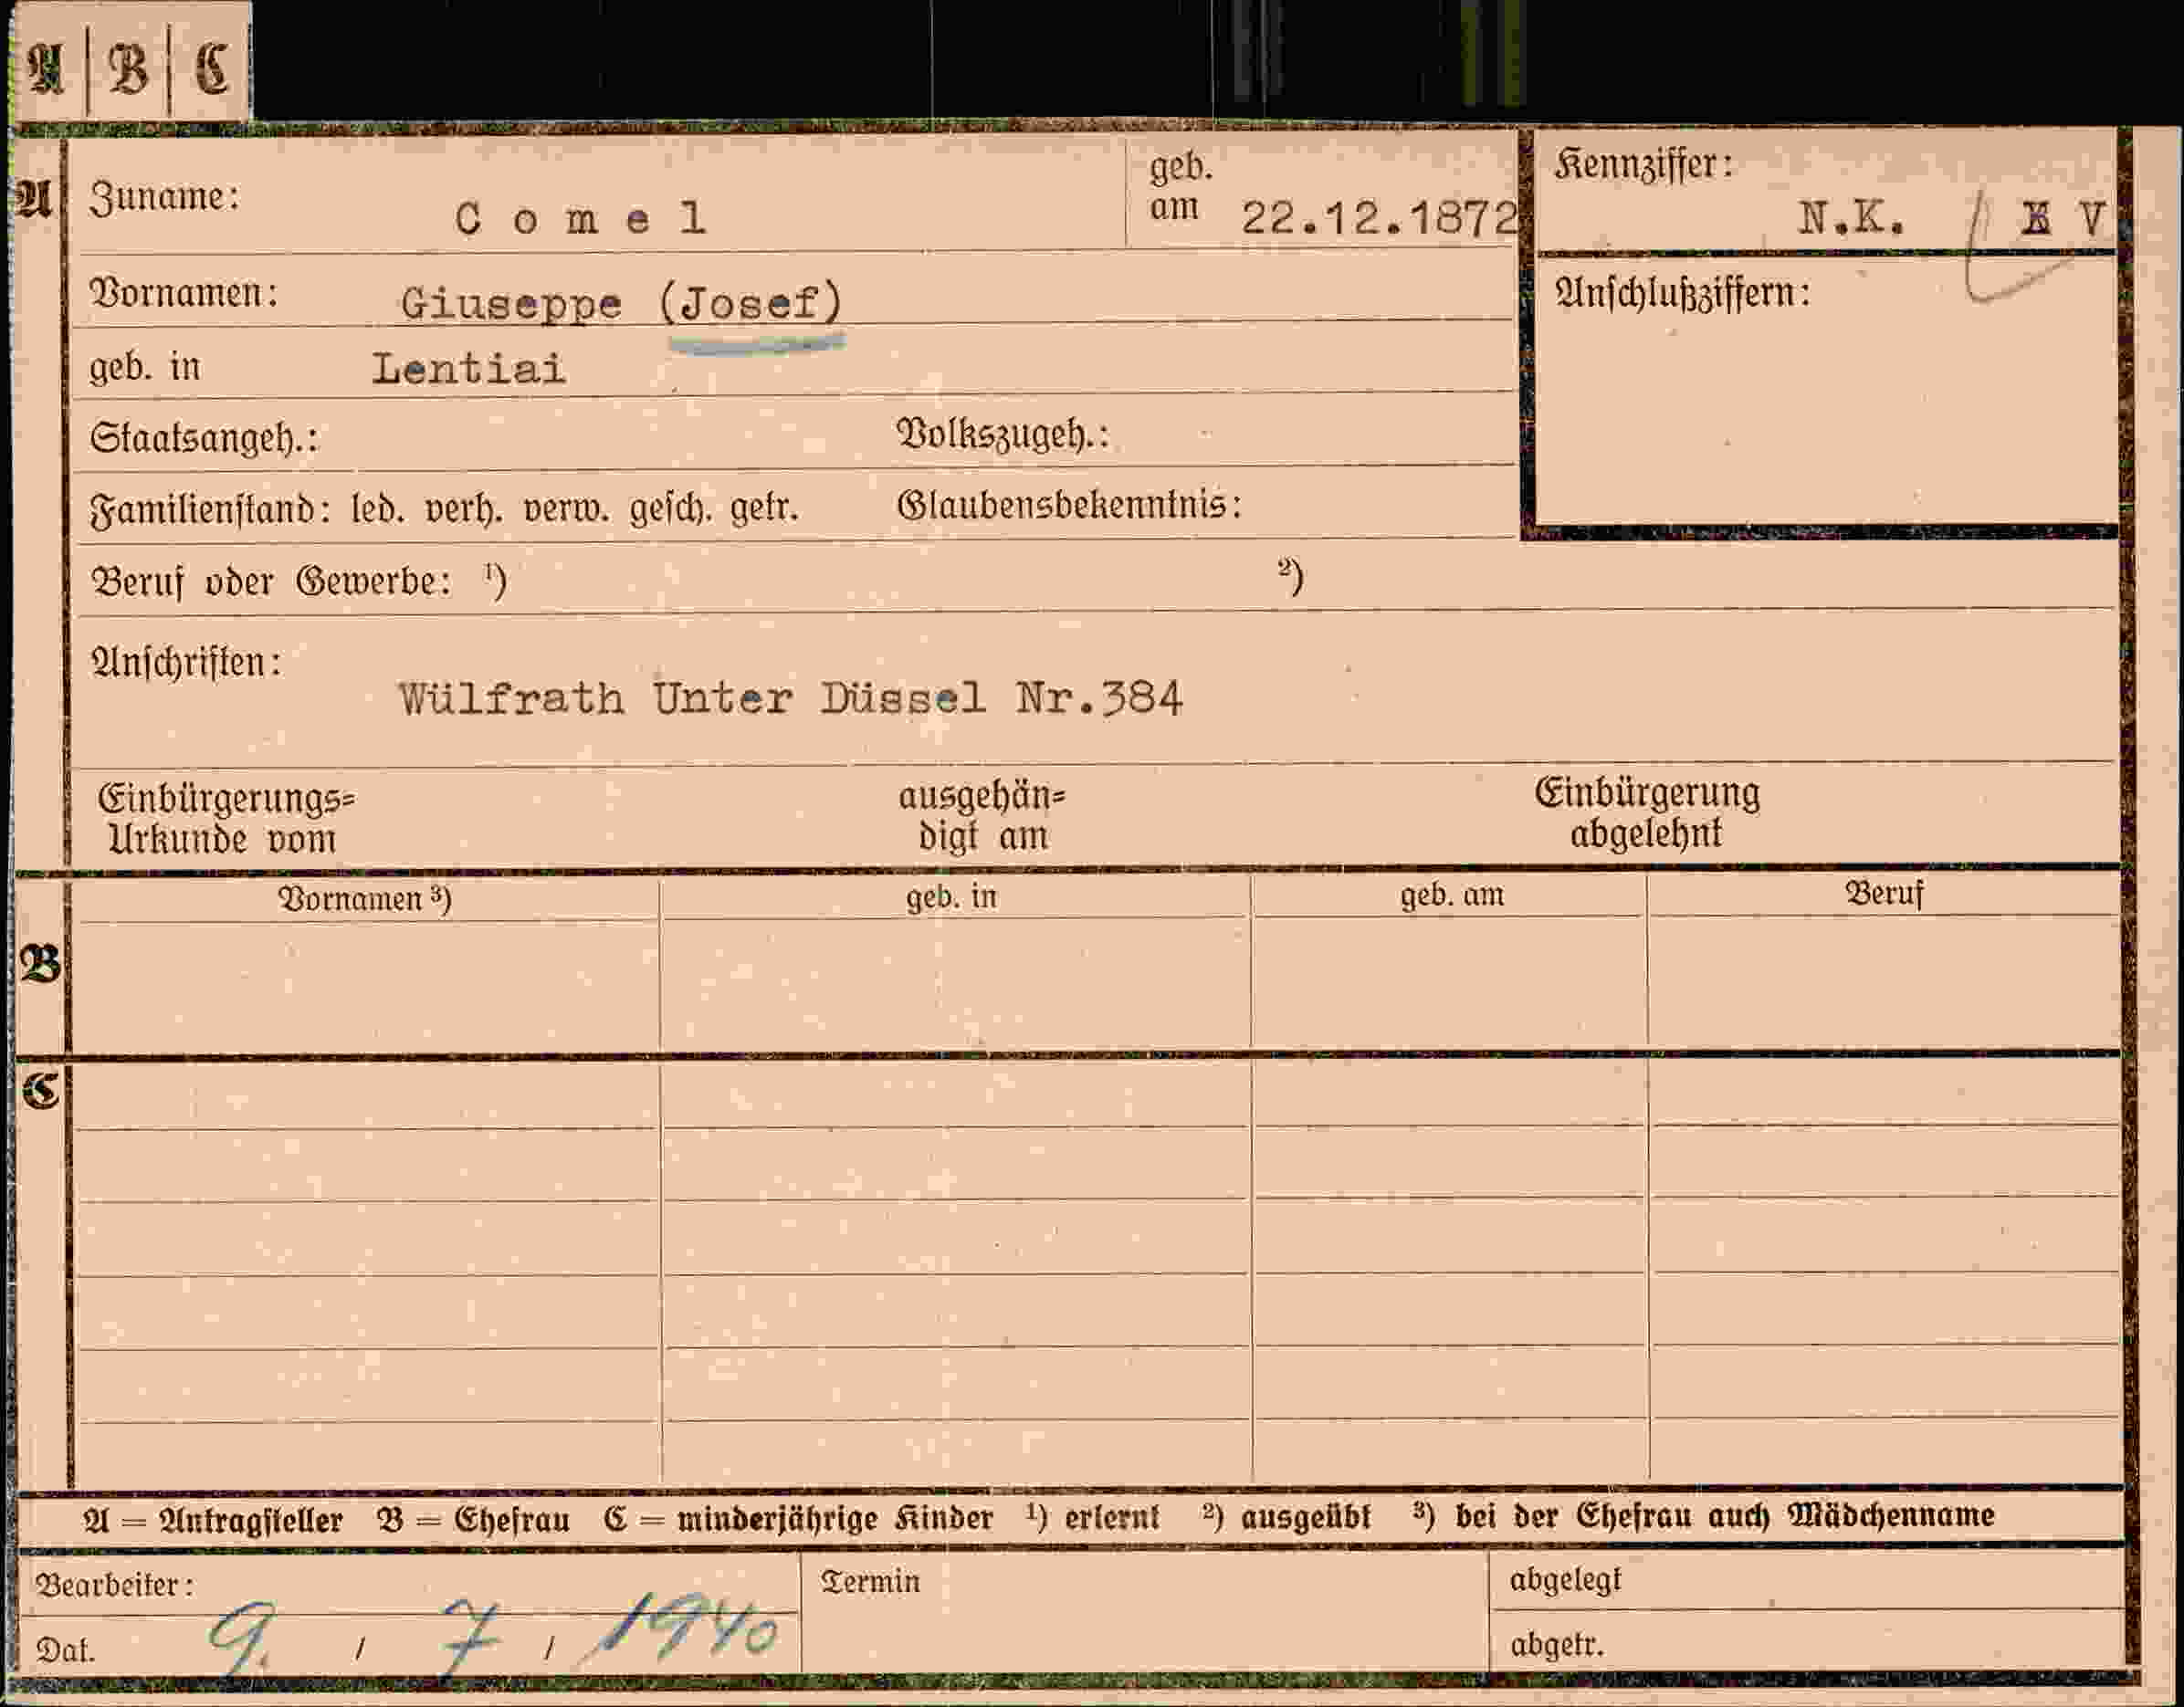 A | B | C
A
Zuname: Comel
geb. am 22.12.1872
Kennziffer: N.K. / V
Vornamen: Giuseppe (Josef)
Anschlußziffern:
geb. in Lentiai
Staatsangeh.: Volkszugeh.:
Familienstand: led. verh. verw. gesch. getr. Glaubensbekenntnis:
Beruf oder Gewerbe: ¹) ²)
Anschriften:
Wülfrath Unter Düssel Nr.384
Einbürgerungs= ausgehän= Einbürgerung
Urkunde vom digt am abgelehnt
Vornamen ³) geb. in geb. am Beruf
B
C
A = Antragsteller B = Ehefrau C = minderjährige Kinder ¹) erlernt ²) ausgeübt ³) bei der Ehefrau auch Mädchenname
Bearbeiter: Termin abgelegt
Dat. 9. / 7 / 1940 abgetr.